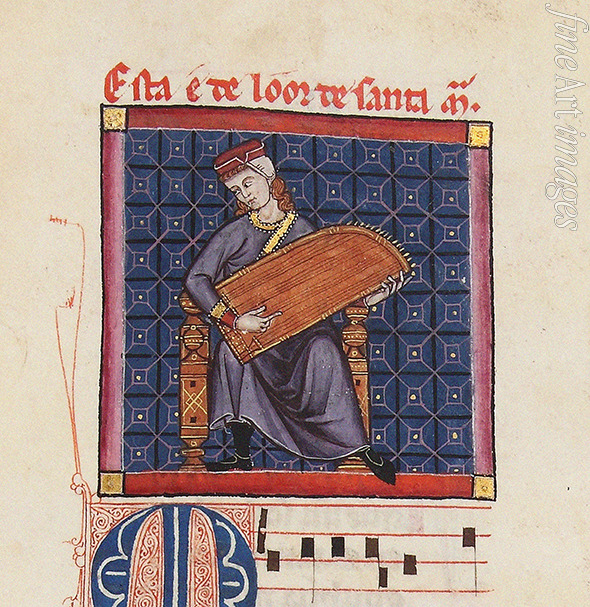 Esta é de loor de santa M̃.
fine Art images